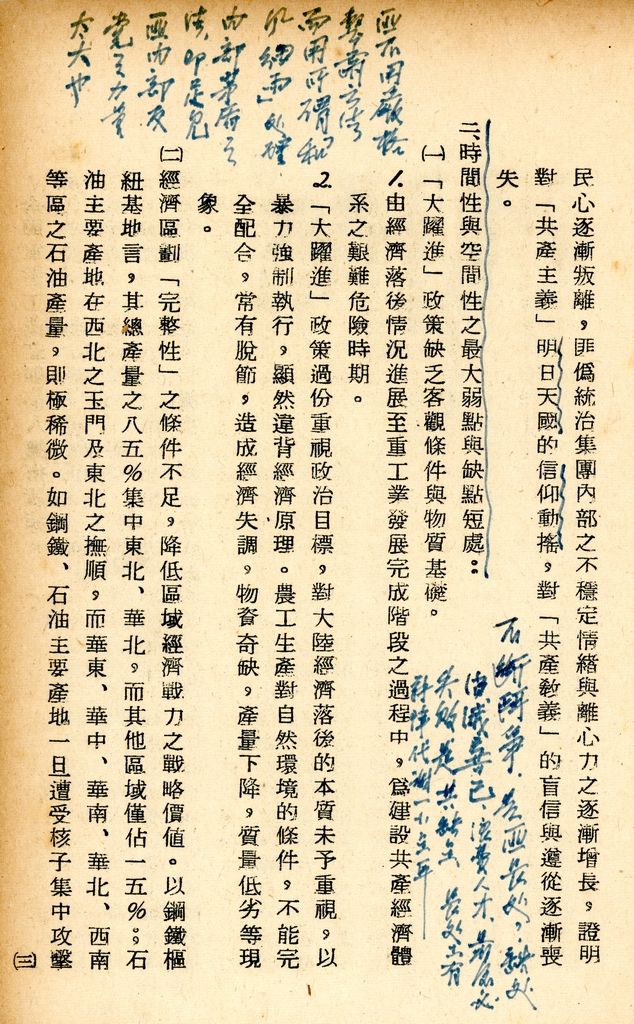 民心逐漸叛離，匪偽統治集團內部之不穩定情緒與離心力之逐漸增長，證明
對「共產主義」明日天國的信仰動搖，對「共產教義」的盲信與遵從逐漸喪
失。
二、時間性與空間性之最大弱點與缺點短處：
㈠「大躍進」政策缺乏客觀條件與物質基礎。
1.由經濟落後情況進展至重工業發展完成階段之過程中，爲建設共產經濟體
系之艱難危險時期。
2.「大躍進」政策過份重視政治目標，對大陸經濟落後的本質未予重視，以
暴力強制執行，顯然違背經濟原理。農工生產對自然環境的條件，不能完
全配合，常有脫節，造成經濟失調，物資奇缺，產量下降，質量低劣等現
象。
㈡經濟區劃「完整性」之條件不足，降低區域經濟戰力之戰略價值。以鋼鐵樞
紐基地言，其總產量之八五％集中東北、華北，而其他區域僅佔一五％。石
油主要產地在西北之玉門及東北之撫順，而華東、華中、華南、華北、西南
等區之石油產量，則極稀微。如鋼鐵、石油主要產地一旦遭受核子集中攻擊
㈢
匪不用嚴格
整肅方法
而用所謂「和
風細雨」處理
內部矛盾之
法，即足見
匪內部反
黨之力量
太大也
不斷鬥爭，